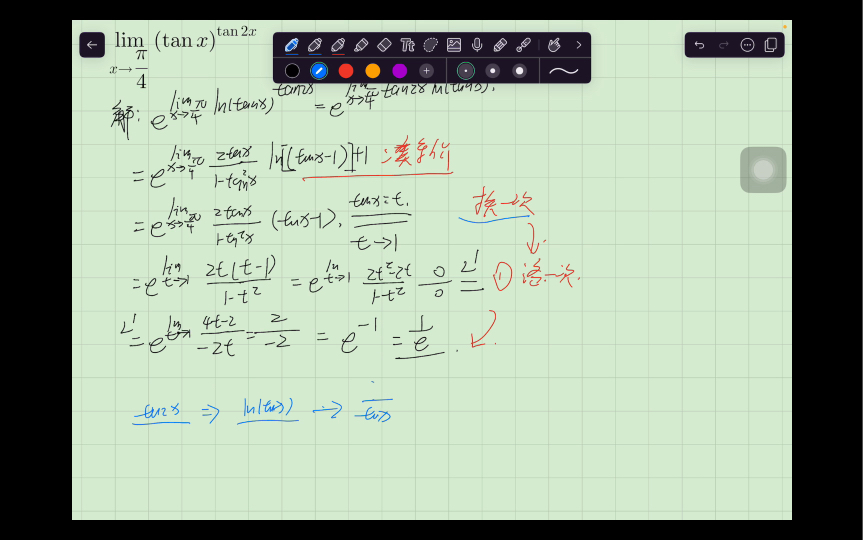 lim x→π/4 (tan x)^{tan 2x}
解: e^{lim x→π/4 ln(tanx)^{tan2x}} = e^{lim x→π/4 tan2x ln(tanx)}.
= e^{lim x→π/4 2tanx/(1-tan²x) ln[(tanx-1)]+1 凑等价
= e^{lim x→π/4 2tanx/(1-tan²x) (tanx-1)}, tanx=t. t→1 换一次
= e^{lim t→1 2t(t-1)/(1-t²)} = e^{lim t→1 (2t²-2t)/(1-t²)} 0/0 L' = ① 洛一次.
L' = e^{lim t→1 (4t-2)/(-2t) = 2/(-2)} = e^{-1} = 1/e.
tan2x ⇒ ln(tanx) → 1/tanx